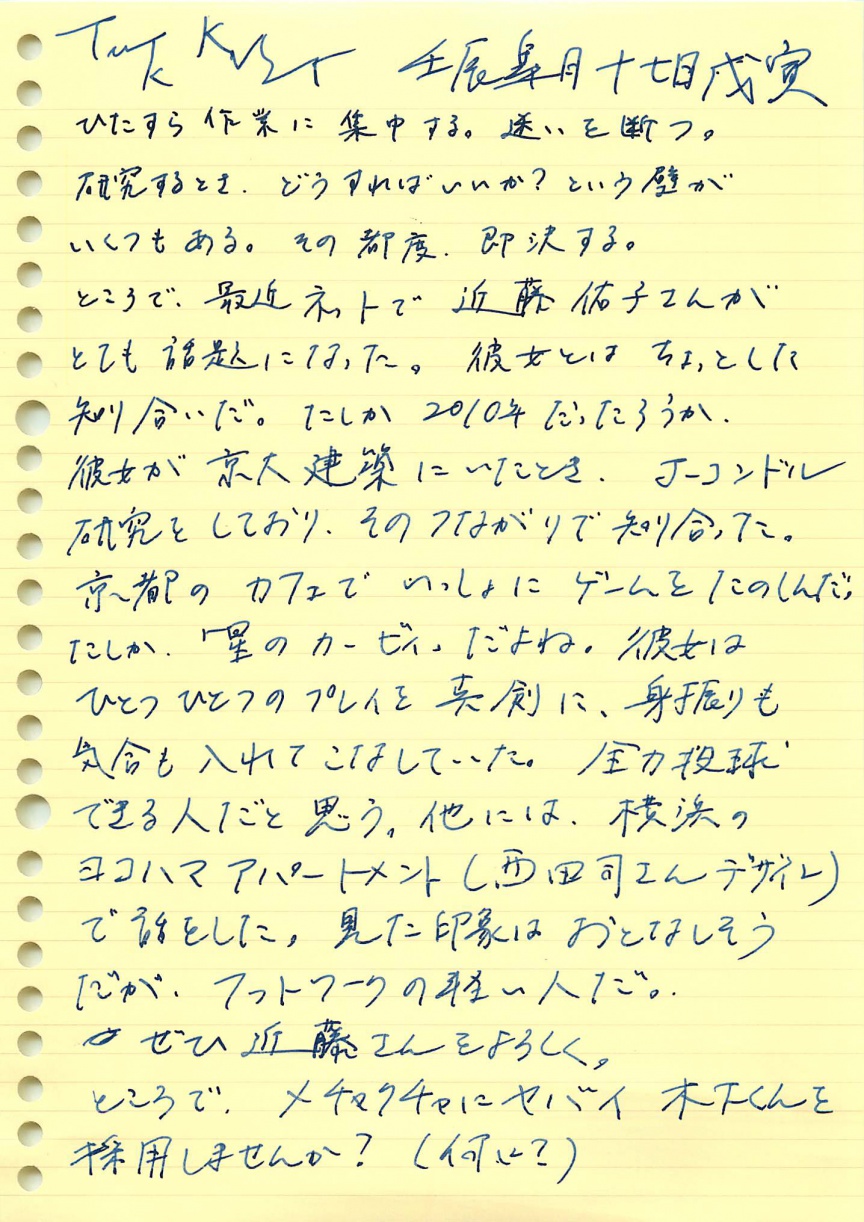 壬辰皐月十七日戊寅
ひたすら作業に集中する。迷いを断つ。
研究するとき、どうすればいいか?という壁が
いくつもある。その都度、即決する。
ところで、最近ネットで近藤佑子さんが
とても話題になった。彼女とはちょっとした
知り合いだ。たしか2010年だったろうか、
彼女が京大建築にいたとき、J-コンドル
研究をしており、そのつながりで知り合った。
京都のカフェでいっしょにゲームをたのしんだ。
たしか、「星のカービィ」だよね。彼女は
ひとつひとつのプレイを真剣に、身振りも
気合も入れてこなしていた。全力投球
できる人だと思う。他には、横浜の
ヨコハマアパートメント(西田司さんデザイン)
で話をした。見た印象はおとなしそう
だが、フットワークの軽い人だ。
ぜひ近藤さんをよろしく。
ところで、メチャクチャにヤバイ木下くんを
採用しませんか?(何に?)